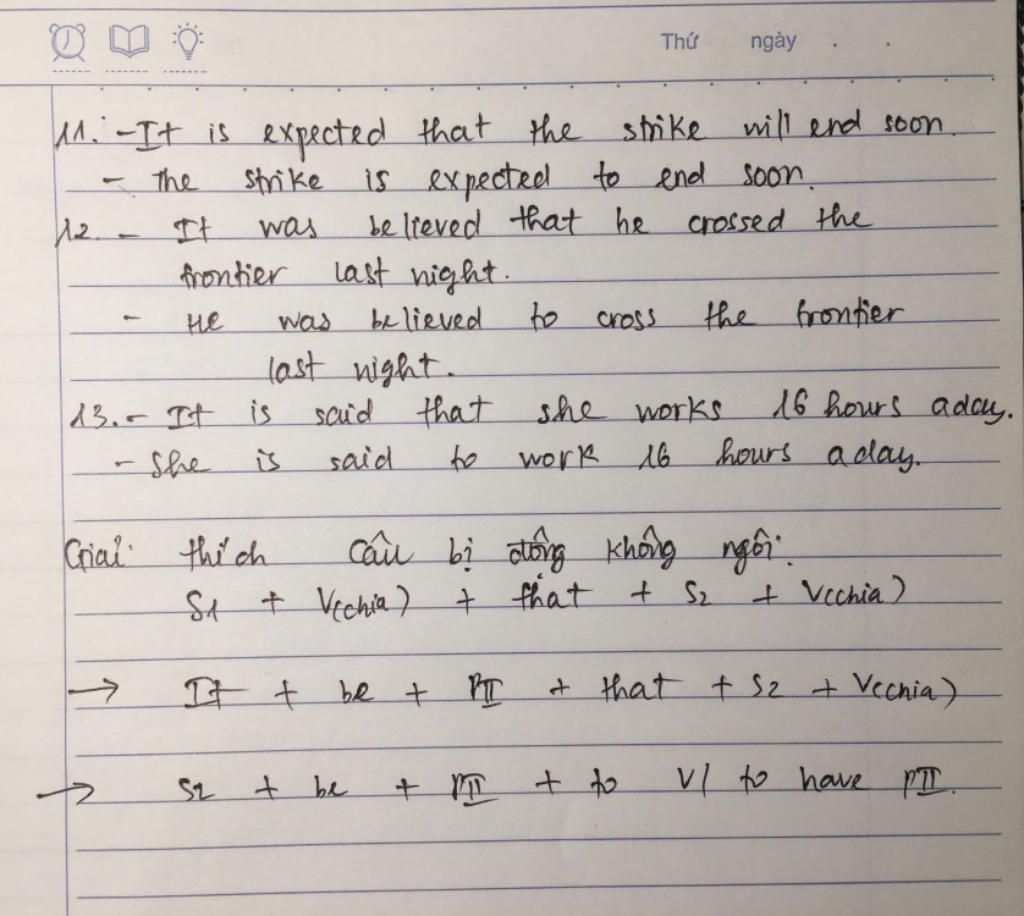 Thứ ngày . .
11. - It is expected that the strike will end soon.
- The strike is expected to end soon.
12. - It was believed that he crossed the
frontier last night.
- He was believed to cross the frontier
last night.
13. - It is said that she works 16 hours a day.
- She is said to work 16 hours a day.
Giải thích câu bị động không ngôi:
S1 + V(chia) + that + S2 + V(chia)
→ It + be + PII + that + S2 + V(chia)
→ S2 + be + PII + to V/ to have PII.